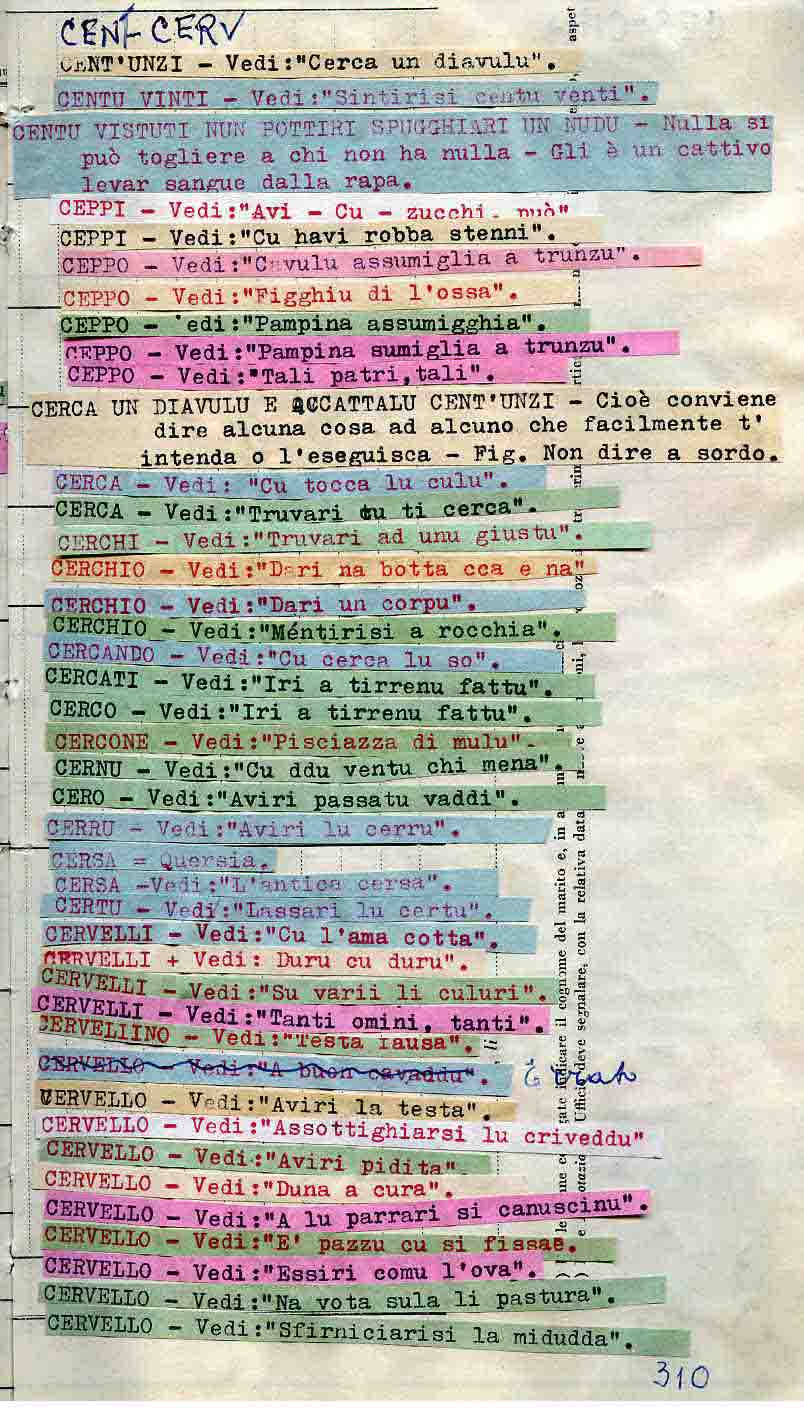 CENT-CERV
CENT'UNZI - Vedi:"Cerca un diavulu".
CENTU VINTI - Vedi:"Sintirisi centu venti".
CENTU VISTUTI NUN POTTIRI SPUGGHIARI UN NUDU - Nulla si
può togliere a chi non ha nulla - Gli è un cattivo
levar sangue dalla rapa.
CEPPI - Vedi:"Avi - Cu - zucchi. può"
CEPPI - Vedi:"Cu havi robba stenni".
CEPPO - Vedi:"Cavulu assumiglia a trunzu".
CEPPO - Vedi:"Figghiu di l'ossa".
CEPPO - edi:"Pampina assumigghia".
CEPPO - Vedi:"Pampina sumiglia a trunzu".
CEPPO - Vedi:"Tali patri,tali".
CERCA UN DIAVULU E ACCATTALU CENT'UNZI - Cioè conviene
dire alcuna cosa ad alcuno che facilmente t'
intenda o l'eseguisca - Fig. Non dire a sordo.
CERCA - Vedi: "Cu tocca lu culu".
CERCA - Vedi:"Truvari cu ti cerca".
CERCHI - Vedi:"Truvari ad unu giustu".
CERCHIO - Vedi:"Dari na botta cca e na"
CERCHIO - Vedi:"Dari un corpu".
CERCHIO - Vedi:"Méntirisi a rocchia".
CERCANDO - Vedi:"Cu cerca lu so".
CERCATI - Vedi:"Iri a tirrenu fattu".
CERCO - Vedi:"Iri a tirrenu fattu".
CERCONE - Vedi:"Pisciazza di mulu".
CERNU - Vedi:"Cu ddu ventu chi mena".
CERO - Vedi:"Aviri passatu vaddi".
CERRU - Vedi:"Aviri lu cerru".
CERSA = Quersia.
CERSA -Vedi:"L'antica cersa".
CERTU - Vedi:"Lassari lu certu".
CERVELLI - Vedi:"Cu l'ama cotta".
CERVELLI + Vedi: Duru cu duru".
CERVELLI - Vedi:"Su varii li culuri".
CERVELLI - Vedi:"Tanti omini, tanti".
CERVELIINO - Vedi:"Testa fausa".
CERVELLO - Vedi:"A buon cavaddu". Errato
CERVELLO - Vedi:"Aviri la testa".
CERVELLO - Vedi:"Assottighiarsi lu criveddu"
CERVELLO - Vedi:"Aviri pidita".
CERVELLO - Vedi:"Duna a cura".
CERVELLO - Vedi:"A lu parrari si canuscinu".
CERVELLO - Vedi:"E' pazzu cu si fissae.
CERVELLO - Vedi:"Essiri comu l'ova".
CERVELLO - Vedi:"Na vota sula li pastura".
CERVELLO - Vedi:"Sfirniciarisi la midudda".
310
aspet
icare il cognome del marito e, in a
Uffici deve segnalare, con la relativa data